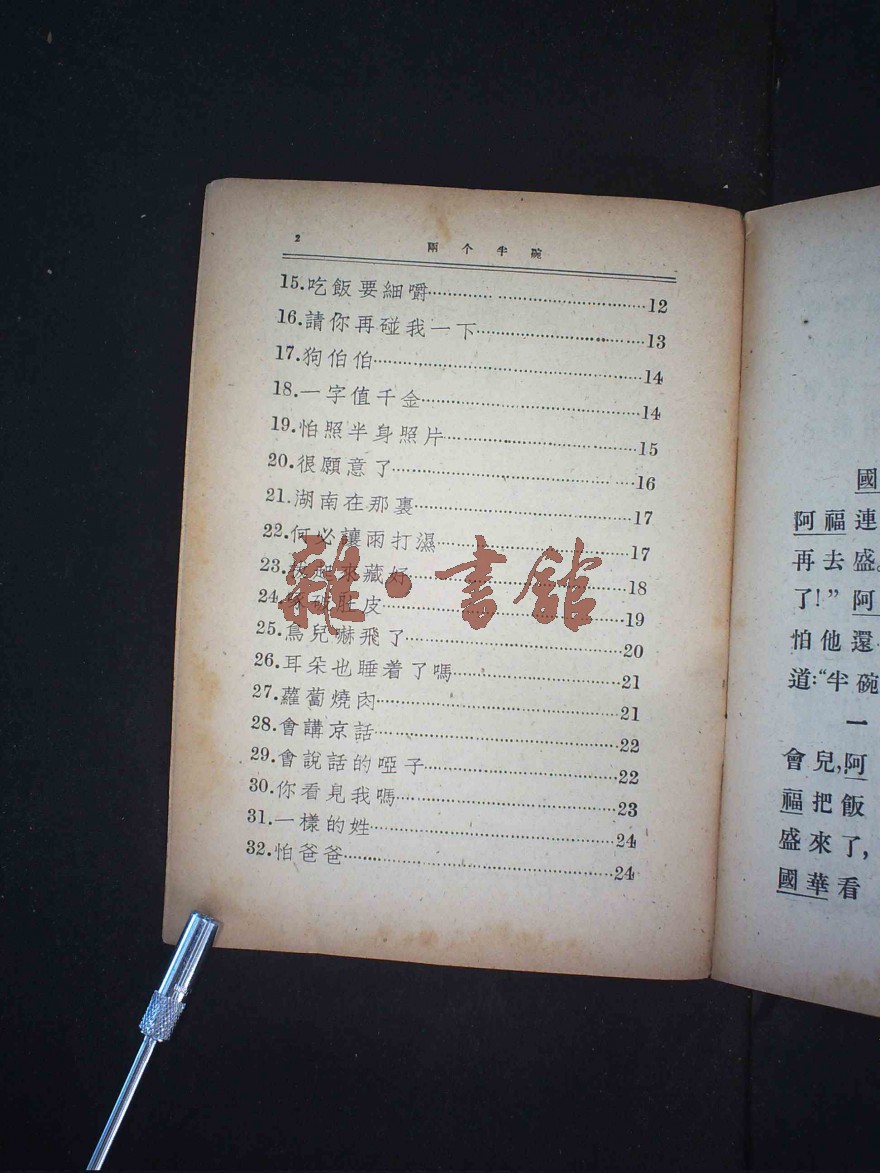 2 兩个半碗
15.吃飯要細嚼 12
16.請你再碰我一下 13
17.狗伯伯 14
18.一字值千金 14
19.怕照半身照片 15
20.很願意了 16
21.湖南在那裏 17
22.何必讓雨打濕 17
23.起來藏好 18
24.破肚皮 19
25.鳥兒嚇飛了 20
26.耳朵也睡着了嗎 21
27.蘿蔔燒肉 21
28.會講京話 22
29.會說話的啞子 22
30.你看見我嗎 23
31.一樣的姓 24
32.怕爸爸 24
雜·書館
國
阿福連
再去盛。
了!”阿
怕他還
道:“半碗
一
會兒,阿
福把飯
盛來了,
國華看